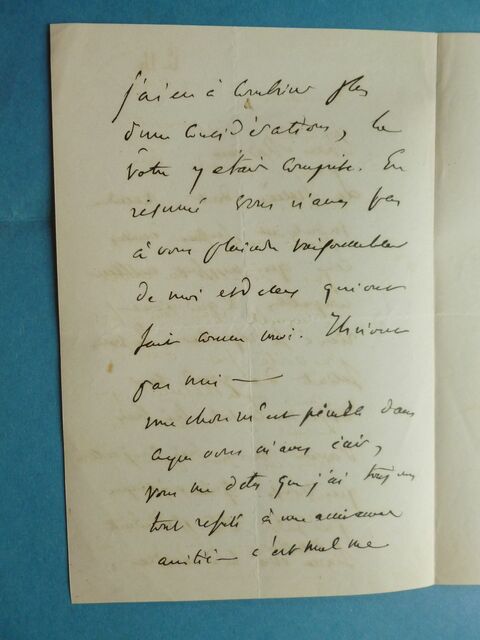 j'ai eu à combiner plus
d'une considérations, la
vôtre y était comprise. En
résumé vous n'avez pas
à vous plaindre
de moi et de ceux qui ont
fait comme moi. Ils n'ont
pas nui —
une chose m'est pénible dans
ce que vous m'avez écrit,
vous me dites que j'ai toujours
tout refusé à une ancienne
amitié — c'est mal me